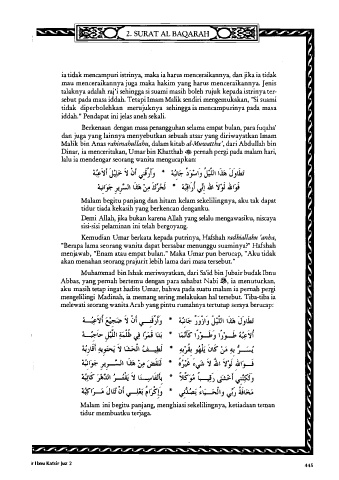 2. SURAT AL BAQARAH
ia tidak mencampuri istrinya, maka ia harus menceraikannya, dan jika ia tidak
mau menceraikannya juga maka hakim yang harus menceraikannya. Jenis
talaknya adalah raj'i sehingga si suami masih boleh rujuk kepada istrinya ter-
sebut pada masa iddah. Tetapi Imam Malik sendiri mengemukakan, "Si suami
tidak diperbolehkan merujuknya sehingga ia mencampurinya pada masa
iddah." Pendapat ini jelas aneh sekali.
Berkenaan dengan masa penangguhan selama empat bulan, para fuqaha'
dan juga yang lainnya menyebutkan sebuah atsar yang diriwayatkan Imam
Malik bin Anas rahimahullahu, dalam kitab al-Muwattha', dari Abdullah bin
Dinar, ia menceritakan, Umar bin Khatthab pernah pergi pada malam hari,
lalu ia mendengar seorang wanita mengucapkan:
تَطَاوَلَ هَذَا اللَّيْلُ وَاسْوَدَّ جَانِبُهُ * وَأَرَّقَنِي أَنْ لاَ خَلِيْلَ أُلاَعِبُهُ
فَوَاللهِ لَوْلاَ اللهُ إِنِّي أُرَاقِبُهُ * لَحُرِّكَ مِنْ هَذَا السَّرِيْرِ جَوَانِبُهُ
Malam begitu panjang dan hitam kelam sekelilingnya, aku tak dapat
tidur tiada kekasih yang berkencan denganku.
Demi Allah, jika bukan karena Allah yang selalu mengawasiku, niscaya
sisi-sisi pelaminan ini telah bergoyang.
Kemudian Umar berkata kepada putrinya, Hafshah radhiallahu 'anha,
"Berapa lama seorang wanita dapat bersabar menunggu suaminya?" Hafshah
menjawab, "Enam atau empat bulan." Maka Umar pun berucap, "Aku tidak
akan menahan seorang prajurit lebih lama dari masa tersebut."
Muhammad bin Ishak meriwayatkan, dari Sa'id bin Jubair budak Ibnu
Abbas, yang pernah bertemu dengan para sahabat Nabi, ia menuturkan,
aku masih tetap ingat hadits Umar, bahwa pada suatu malam ia pernah pergi
mengelilingi Madinah, ia memang sering melakukan hal tersebut. Tiba-tiba ia
melewati seorang wanita Arab yang pintu rumahnya tertutup seraya berucap:
تَطَاوَلَ هَذَا اللَّيْلُ وَازْوَرَّ جَانِبُهُ * وَأَرَّقَنِي أَنْ لاَ ضَجِيْعَ أُلاَعِبُهُ
أُلاَعِبُهُ طَوْرًا وَطَوْرًا كَأَنَّمَا * بَدَا قَمَرًا فِي ظُلْمَةِ اللَّيْلِ حَاجِبُهُ
يُسَرُّ بِهِ مَنْ كَانَ يَلْهُو بِقُرْبِهِ * لَطِيْفُ الْحَشَا لاَ يَحْتَوِيْهِ أَقَارِبُهُ
فَوَاللهِ لَوْلاَ اللهُ لاَ شَيْءَ غَيْرُهُ * لَنُقِضَ مِنْ هَذَا السَّرِيْرِ جَوَانِبُهُ
وَلَكِنَّنِي أَخْشَى رَقِيْبًا مُوَكَّلاً * بِأَنْفَاسِنَا لاَ يَفْتُرُ الدَّهْرَ كَاتِبُهُ
مَخَافَةَ رَبِّي وَالْحَيَاءُ يَصُدُّنِي * وَإِكْرَامُ بَعْلِي أَنْ تُنَالَ مَرَاكِبُهُ
Malam ini begitu panjang, menghiasi sekelilingnya, ketiadaan teman
tidur membuatku terjaga.
r Ibnu Katsir Juz 2
445